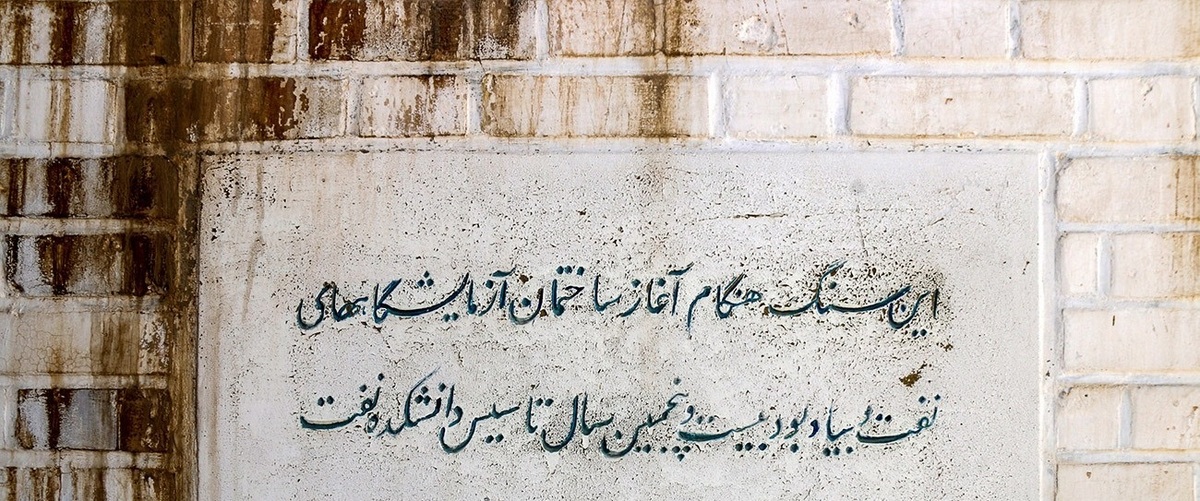 این سنگ هنگام آغاز ساختمان آزمایشگاههای
نفت و بیاد بود بیست و پنجمین سال تاسیس دانشکده نفت